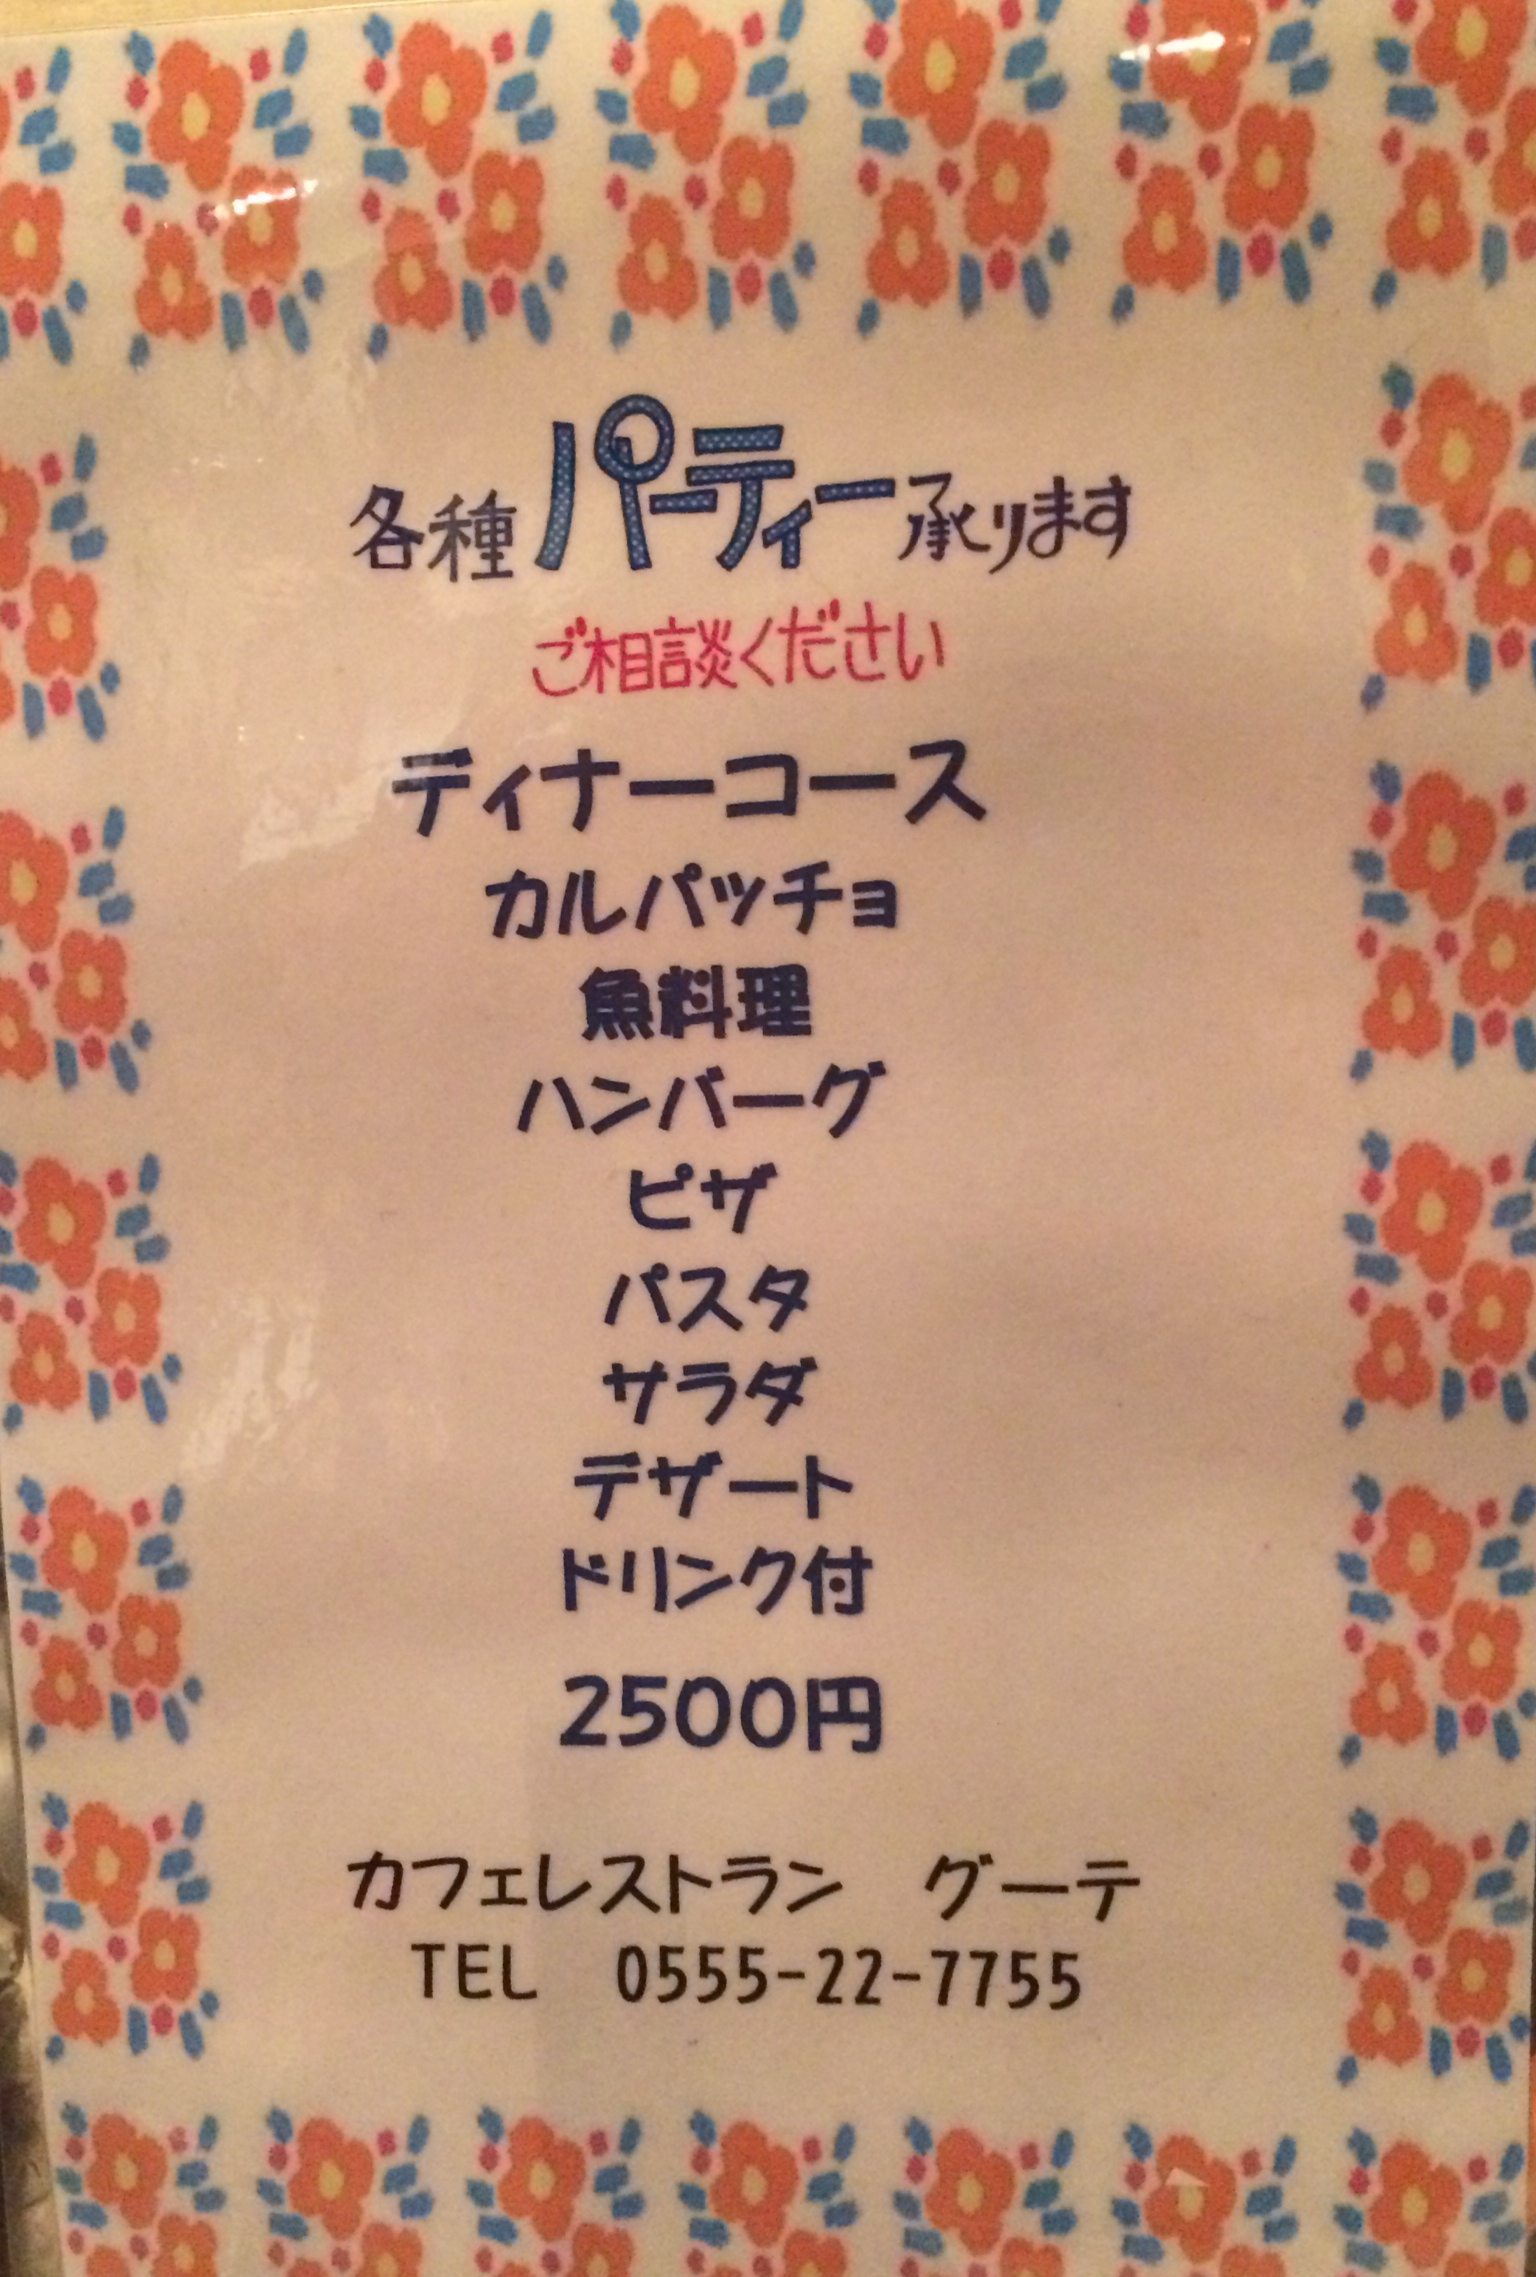 各種パーティー承ります
ご相談ください
ディナーコース
カルパッチョ
魚料理
ハンバーグ
ピザ
パスタ
サラダ
デザート
ドリンク付
2500円
カフェレストラン　グーテ
TEL　0555-22-7755